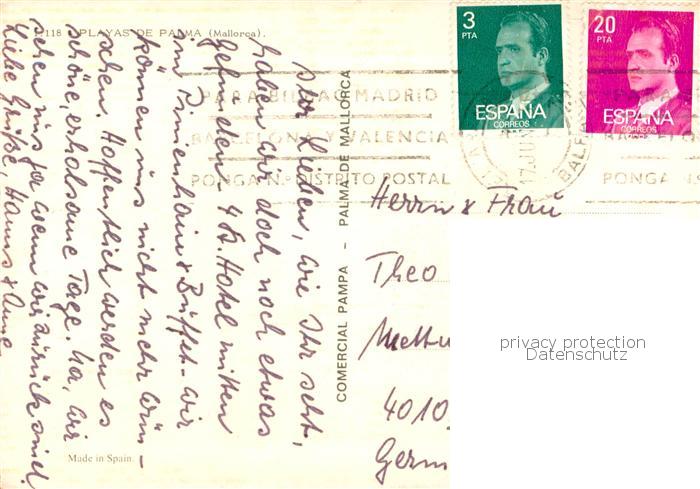 118 - PLAYAS DE PALMA (Mallorca).
Ihr Lieben, wie Ihr seht,
haben wir doch noch etwas
gefunden. 4 St. Hotel mitten
im Pinienhain & Büffet - wir
können uns nicht mehr wün-
schen. Hoffentlich werden es
schöne, erholsame Tage. Na, wir
sehen uns ja wenn wir zurück sind.
Liebe Grüße, Hanns & Anne
Made in Spain.
COMERCIAL PAMPA - PALMA DE MALLORCA
PARA BILBAO MADRID
BARCELONA Y VALENCIA
PONGA N.º DISTRITO POSTAL
3
PTA
ESPAÑA
CORREOS
20
PTA
ESPAÑA
CORREOS
17 JU
BALE
PONGA N
Herrn & Frau
Theo
4010
Germ
privacy protection
Datenschutz